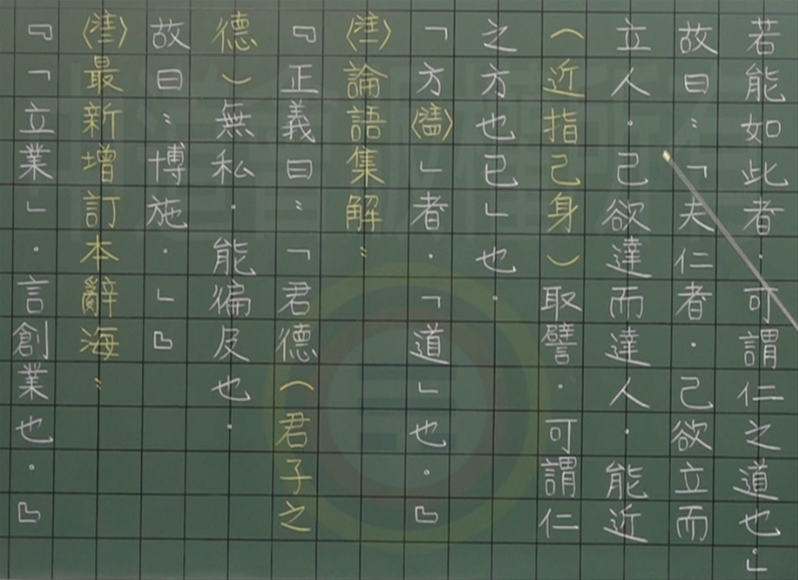 若能如此者．可謂仁之道也．」
故曰：「夫仁者．己欲立而
立人．己欲達而達人．能近
（近指己身）取譬．可謂仁
之方也已」也．
「方」者．「道」也．』
論語集解：
『正義曰：「君德（君子之
德）無私．能徧及也．
故曰：博施．」』
最新增訂本辭海：
『「立業」．言創業也．』